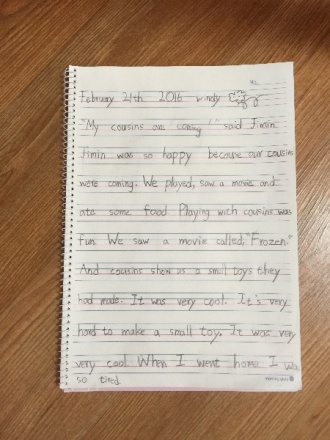 February 21th 2016 windy
"My cousins are coming!" said Jimin.
Jimin was so happy because our cousins
were coming. We played, saw a movie and
ate some food Playing with cousins was
fun. We saw a movie called, "Frozen."
And cousins show us a small toys they
had made. It was very cool. It's very
hard to make a small toy. It was very
very cool. When I went home I was
so tired.